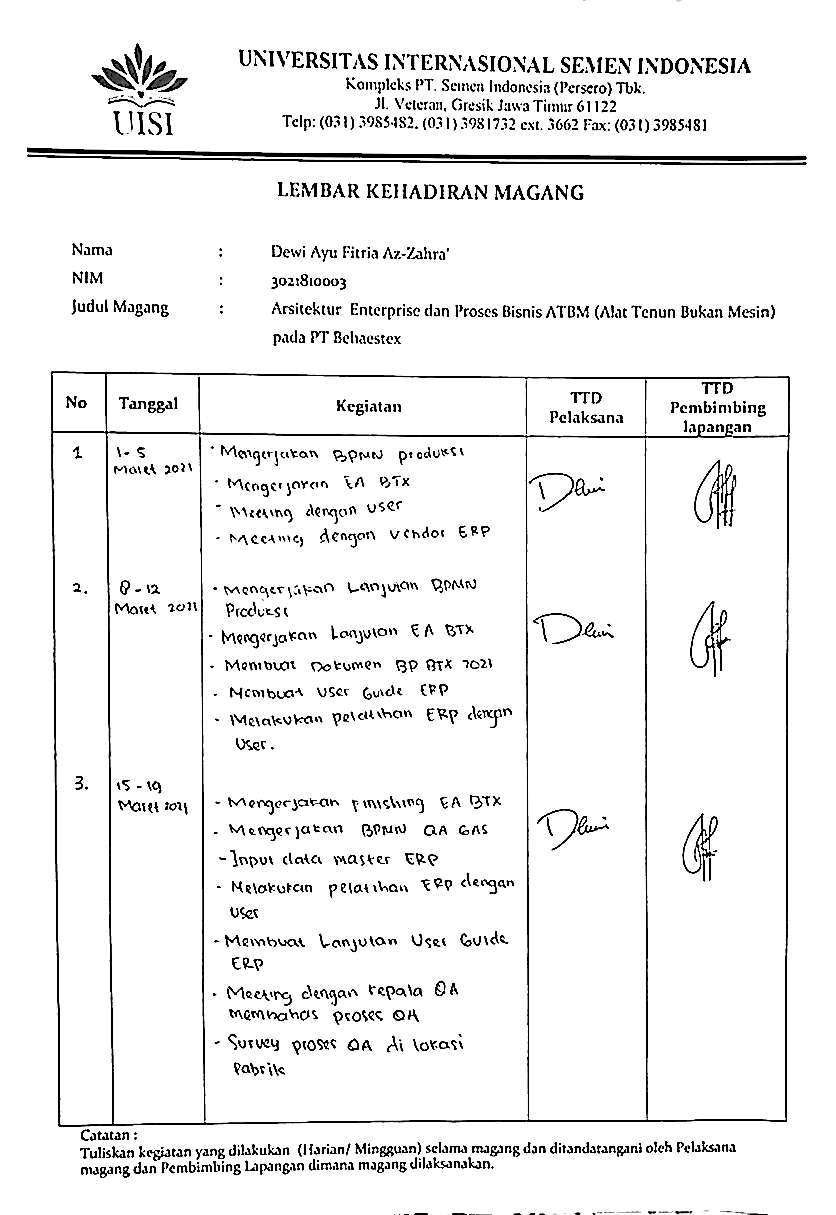 UISI
UNIVERSITAS INTERNASIONAL SEMEN INDONESIA
Kompleks PT. Semen Indonesia (Persero) Tbk.
Jl. Veteran, Gresik Jawa Timur 61122
Telp: (031) 3985482, (031) 3981732 ext. 3662 Fax: (031) 3985481
LEMBAR KEHADIRAN MAGANG
Nama : Dewi Ayu Fitria Az-Zahra'
NIM : 3021810003
Judul Magang : Arsitektur Enterprise dan Proses Bisnis ATBM (Alat Tenun Bukan Mesin)
pada PT Behaestex
No Tanggal Kegiatan TTD Pelaksana TTD Pembimbing lapangan
1 1- 5 Maret 2021
- Mengerjakan BPMN produksi
- Mengerjakan EA BTX
- Meeting dengan User
- Meeting dengan Vendor ERP
Dewi
2. 8 - 12 Maret 2021
- Mengerjakan Lanjutan BPMN
Produksi
- Mengerjakan Lanjutan EA BTX
- Membuat Dokumen BP BTX 2021
- Membuat User Guide ERP
- Melakukan pelatihan ERP dengan
User.
Dewi
3. 15 - 19 Maret 2021
- Mengerjakan finishing EA BTX
- Mengerjakan BPMN QA GAS
- Input data master ERP
- Melakukan pelatihan ERP dengan
User
- Membuat Lanjutan User Guide
ERP
- Meeting dengan kepala QA
membahas proses QA
- Survey proses QA di lokasi
Pabrik
Dewi
Catatan :
Tuliskan kegiatan yang dilakukan (Harian/ Mingguan) selama magang dan ditandatangani oleh Pelaksana
magang dan Pembimbing Lapangan dimana magang dilaksanakan.